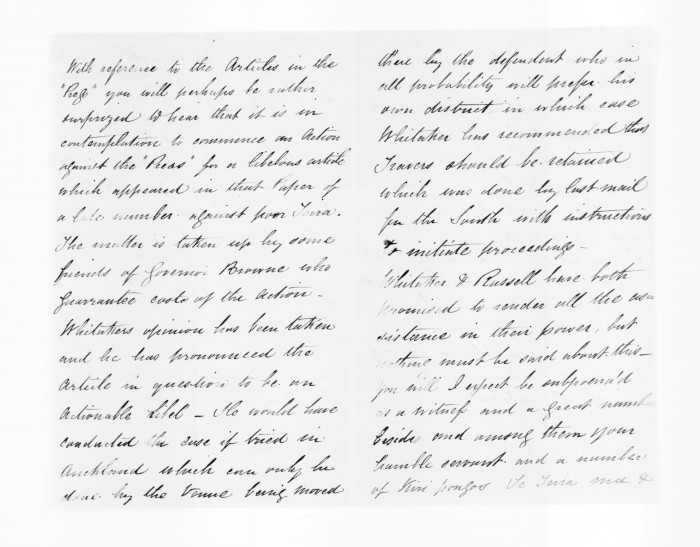 With reference to the Articles in the
"Press" you will perhaps be rather
surprized to hear that it is in
contemplation to commence an Action
against the "Press" for a libelous article
which appeared in that Paper of
a late number against poor Teira.
The matter is taken up by some
friends of Governor Browne who
Guarrantee costs of the action -
Whitakers opinion has been taken
and he has pronounced the
Article in question to be an
Actionable Libel - He would have
conducted the case if tried in
Auckland which can only be
done by the Venue being moved
there by the defendent who in
all probability will prefer his
own district in which case
Whitaker has recommended that
Travers should be retained
which was done by last mail
for the South with instructions
to initiate proceedings -
Whitaker & Russell have both
promised to render all the as
sistance in their power, but
nothing must be said about this -
you will I expect be subpoena'd
as a witness and a great number
besides and among them your
humble servant and a number
of Te Teira and &